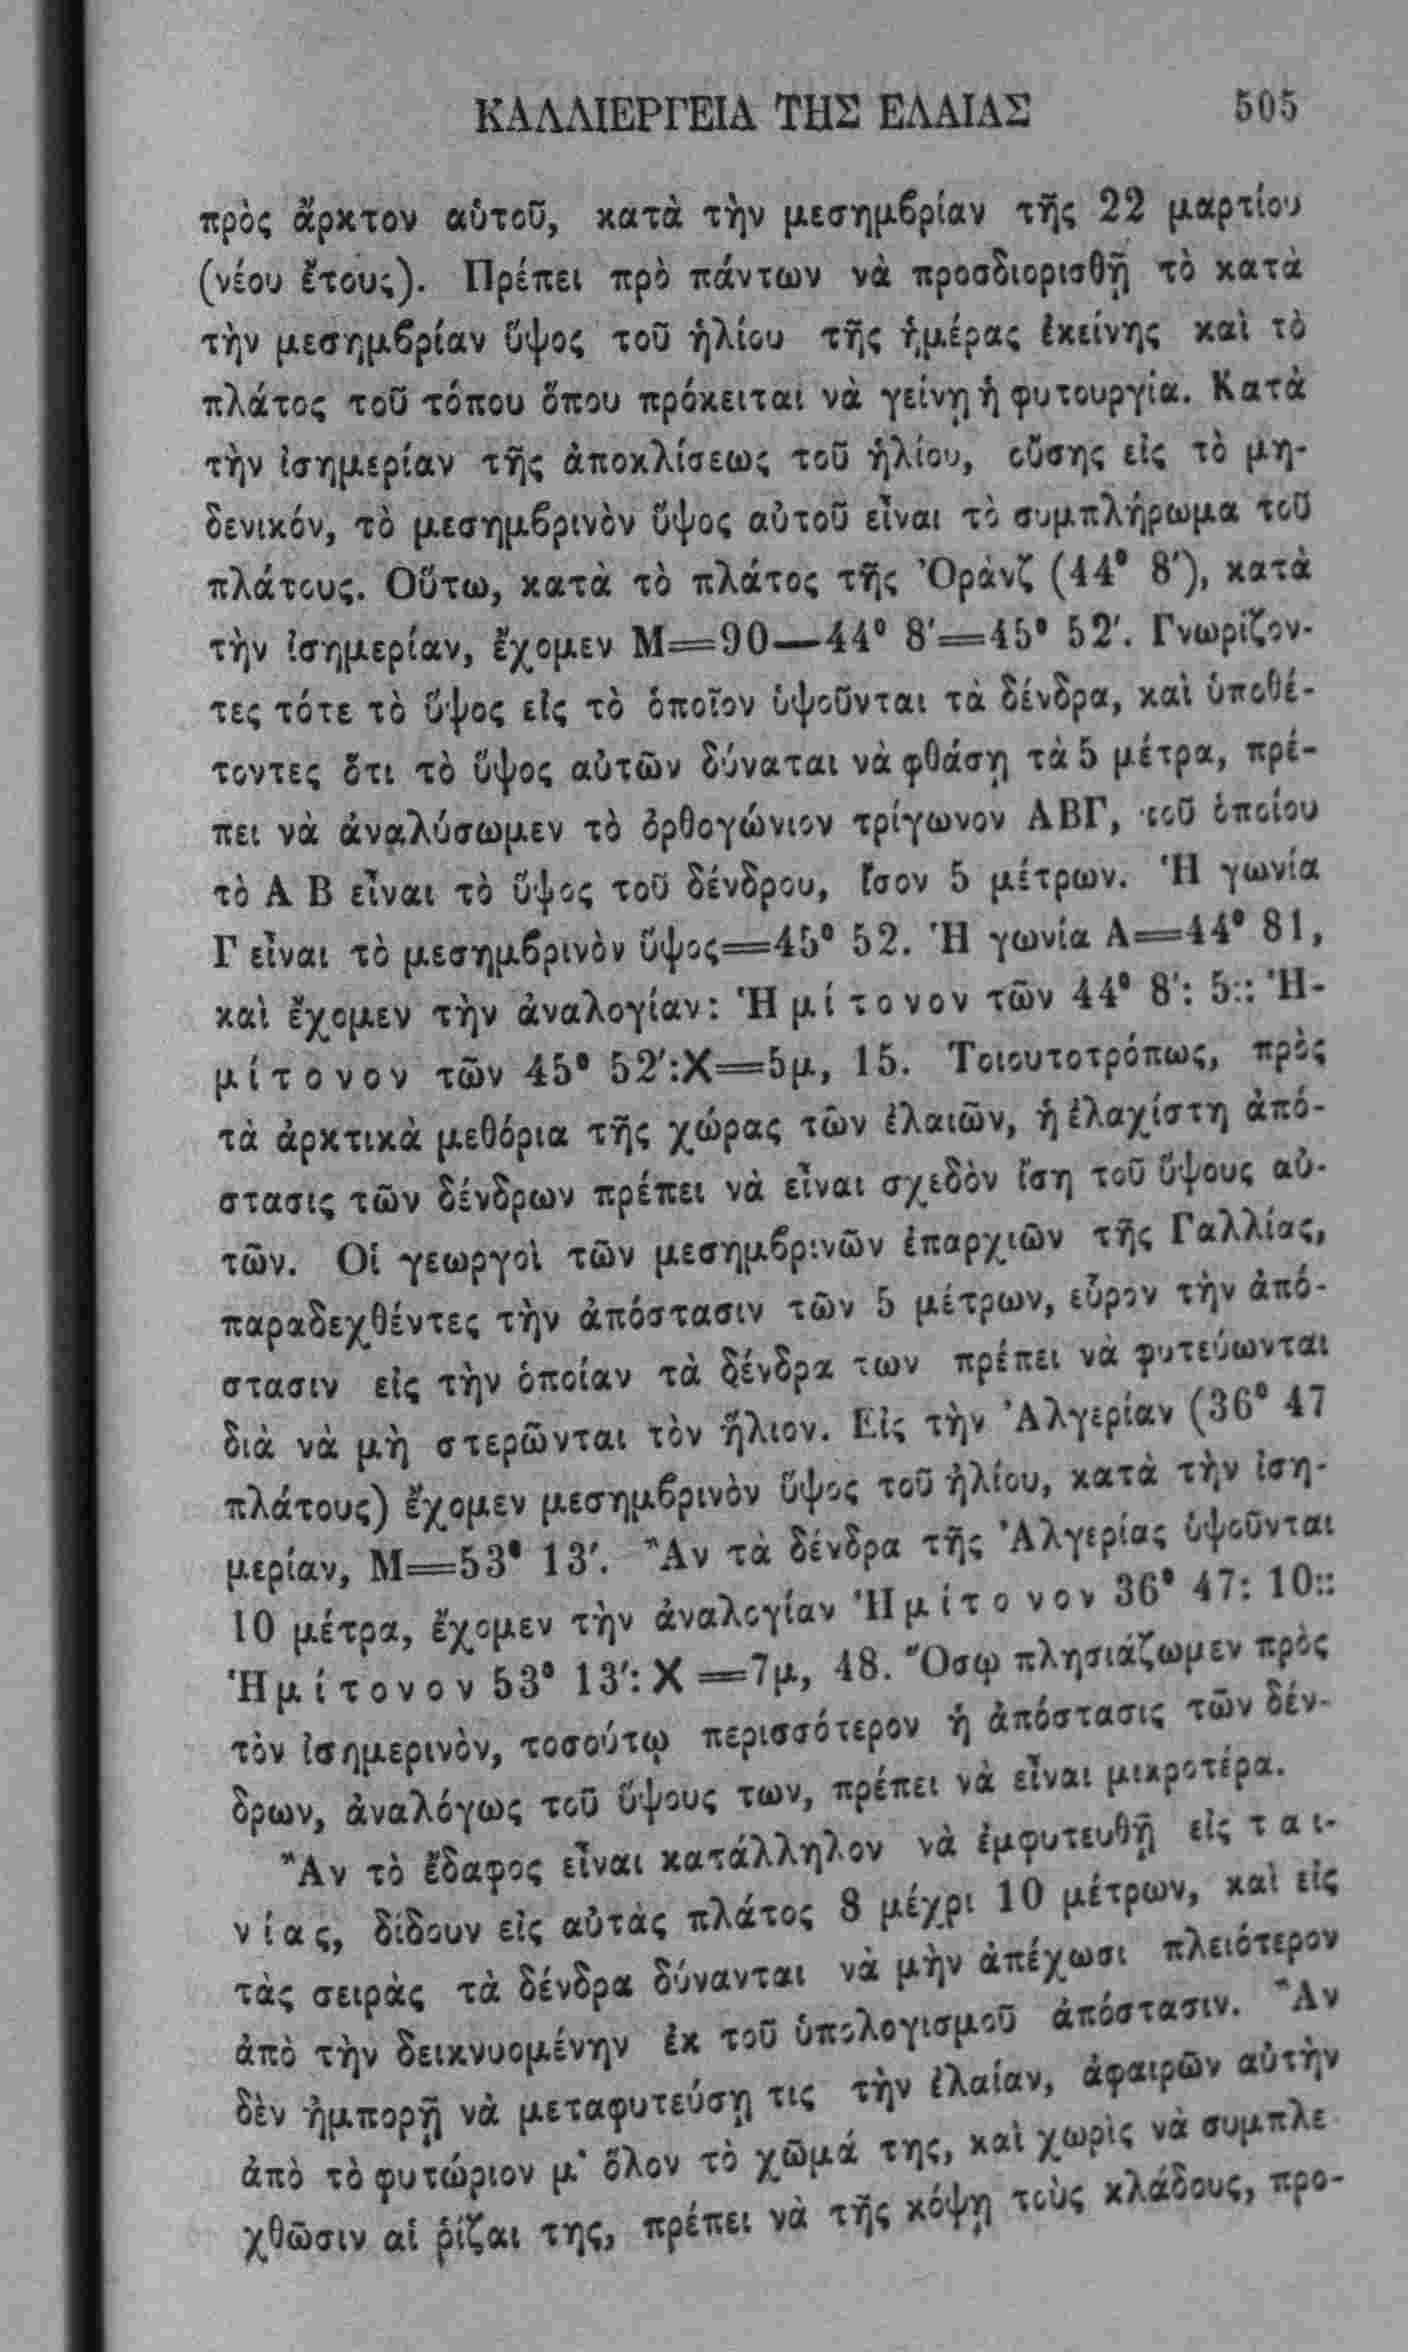 ΚΑΛΛΙΕΡΓΕΙΑ ΤΗΣ ΕΛΑΙΑΣ 505
πρὸς ἄρκτον αὐτοῦ, κατὰ τὴν μεσημβρίαν τῆς 22 μαρτίου
(νέου ἔτους). Πρέπει πρὸ πάντων νὰ προσδιορισθῇ τὸ κατὰ
τὴν μεσημβρίαν ὕψος τοῦ ἡλίου τῆς ἡμέρας ἐκείνης καὶ τὸ
πλάτος τοῦ τόπου ὅπου πρόκειται νὰ γείνῃ ἡ φυτουργία. Κατὰ
τὴν ἰσημερίαν τῆς ἀποκλίσεως τοῦ ἡλίου, οὔσης εἰς τὸ μη-
δενικόν, τὸ μεσημβρινὸν ὕψος αὐτοῦ εἶναι τὸ συμπλήρωμα τοῦ
πλάτους. Οὕτω, κατὰ τὸ πλάτος τῆς Ὀρὰνζ (44° 8′), κατὰ
τὴν ἰσημερίαν, ἔχομεν Μ=90—44° 8′=45° 52′. Γνωρίζον-
τες τότε τὸ ὕψος εἰς τὸ ὁποῖον ὑψοῦνται τὰ δένδρα, καὶ ὑποθέ-
τοντες ὅτι τὸ ὕψος αὐτῶν δύναται νὰ φθάσῃ τὰ 5 μέτρα, πρέ-
πει νὰ ἀναλύσωμεν τὸ ὀρθογώνιον τρίγωνον ΑΒΓ, τοῦ ὁποίου
τὸ Α Β εἶναι τὸ ὕψος τοῦ δένδρου, ἴσον 5 μέτρων. Ἡ γωνία
Γ εἶναι τὸ μεσημβρινὸν ὕψος=45° 52. Ἡ γωνία Α=44° 81,
καὶ ἔχομεν τὴν ἀναλογίαν: Ἡμίτονον τῶν 44° 8′: 5:: Ἡ-
μίτονον τῶν 45° 52′:Χ=5μ, 15. Τοιουτοτρόπως, πρὸς
τὰ ἀρκτικὰ μεθόρια τῆς χώρας τῶν ἐλαιῶν, ἡ ἐλαχίστη ἀπό-
στασις τῶν δένδρων πρέπει νὰ εἶναι σχεδὸν ἴση τοῦ ὕψους αὐ-
τῶν. Οἱ γεωργοὶ τῶν μεσημβρινῶν ἐπαρχιῶν τῆς Γαλλίας,
παραδεχθέντες τὴν ἀπόστασιν τῶν 5 μέτρων, εὗρον τὴν ἀπό-
στασιν εἰς τὴν ὁποίαν τὰ δένδρα των πρέπει νὰ φυτεύωνται
διὰ νὰ μὴ στερῶνται τὸν ἥλιον. Εἰς τὴν Ἀλγερίαν (36° 47
πλάτους) ἔχομεν μεσημβρινὸν ὕψος τοῦ ἡλίου, κατὰ τὴν ἰση-
μερίαν, Μ=53° 13′. Ἂν τὰ δένδρα τῆς Ἀλγερίας ὑψοῦνται
10 μέτρα, ἔχομεν τὴν ἀναλογίαν Ἡμίτονον 36° 47: 10::
Ἡμίτονον 53° 13′: Χ =7μ, 48. Ὅσῳ πλησιάζωμεν πρὸς
τὸν ἰσημερινὸν, τοσούτῳ περισσότερον ἡ ἀπόστασις τῶν δέν-
δρων, ἀναλόγως τοῦ ὕψους των, πρέπει νὰ εἶναι μικροτέρα.
Ἂν τὸ ἔδαφος εἶναι κατάλληλον νὰ ἐμφυτευθῇ εἰς ται-
νίας, δίδουν εἰς αὐτὰς πλάτος 8 μέχρι 10 μέτρων, καὶ εἰς
τὰς σειρὰς τὰ δένδρα δύνανται νὰ μὴν ἀπέχωσι πλειότερον
ἀπὸ τὴν δεικνυομένην ἐκ τοῦ ὑπολογισμοῦ ἀπόστασιν. Ἂν
δὲν ἠμπορῇ νὰ μεταφυτεύσῃ τις τὴν ἐλαίαν, ἀφαιρῶν αὐτὴν
ἀπὸ τὸ φυτώριον μ' ὅλον τὸ χῶμά της, καὶ χωρὶς νὰ συμπλε
χθῶσιν αἱ ῥίζαι της, πρέπει νὰ τῆς κόψῃ τοὺς κλάδους, προ-